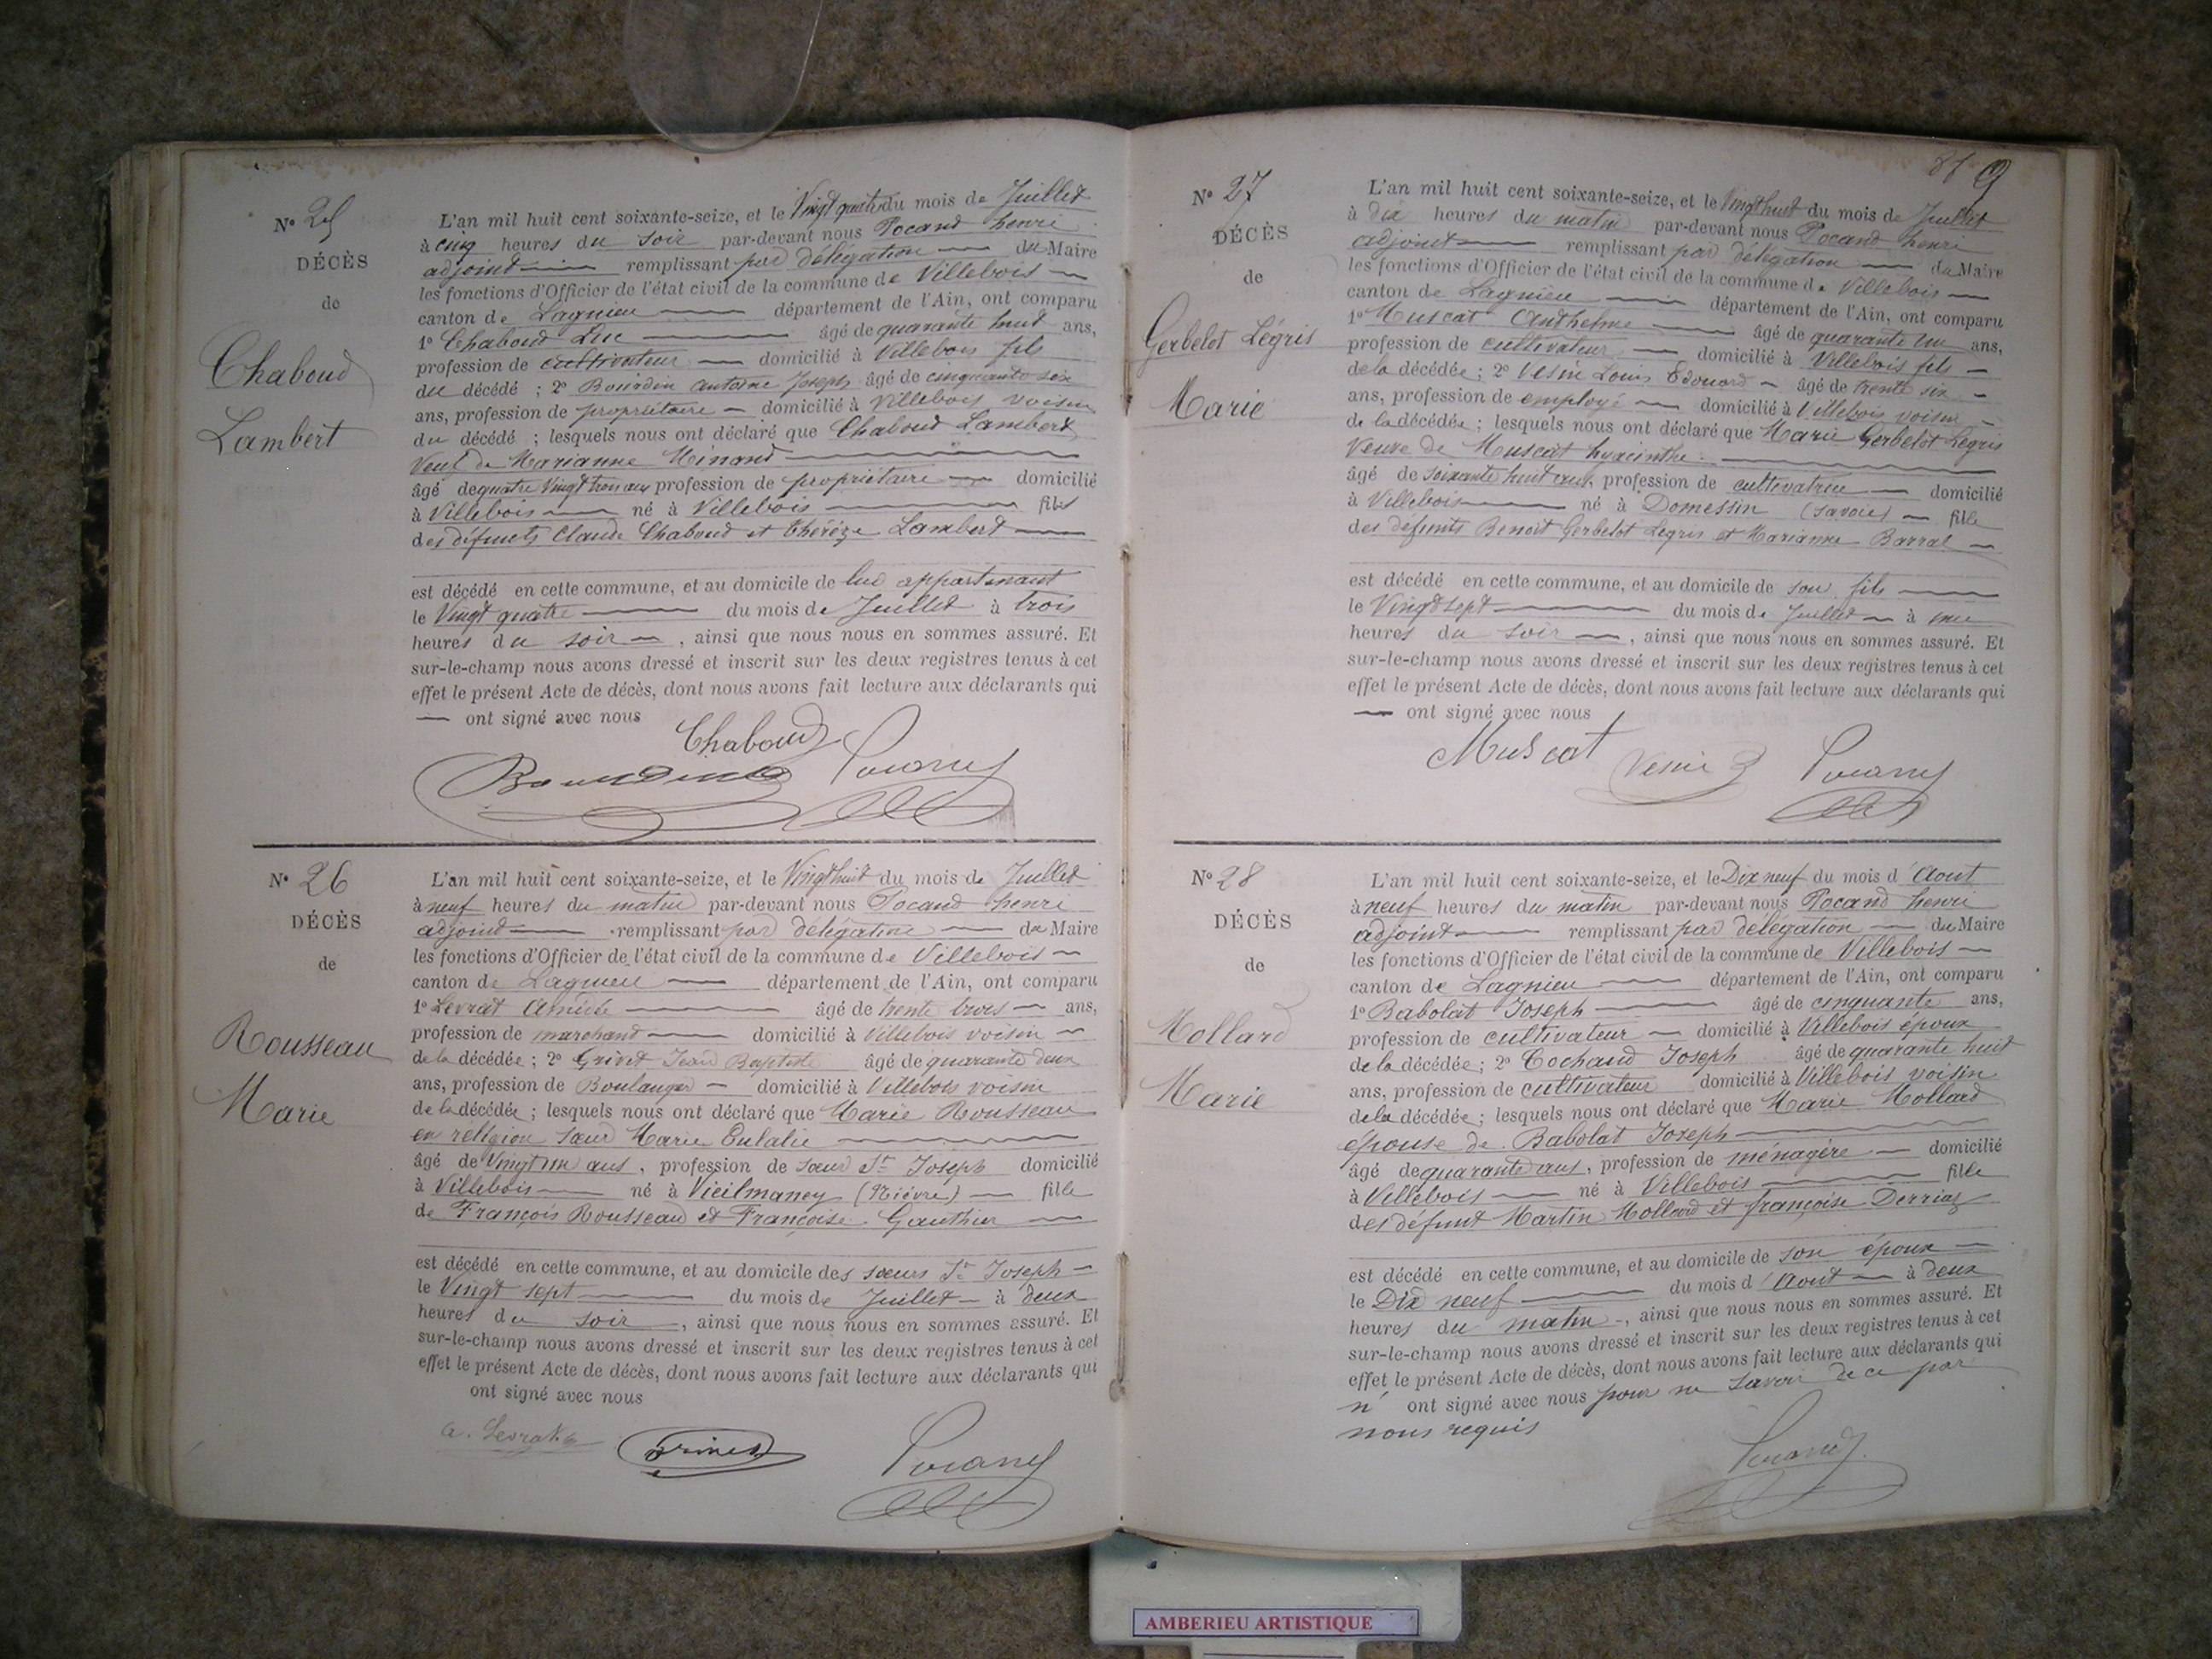 N° 25
DÉCÈS
de
Chaboud
Lambert
L'an mil huit cent soixante-seize, et le Vingt quatre du mois de Juillet
à cinq heures du soir par-devant nous Pocand henri
adjoint remplissant par délégation du Maire
les fonctions d'Officier de l'état civil de la commune de Villebois
canton de Lagnieu département de l'Ain, ont comparu
1° Chaboud Luc âgé de quarante huit ans,
profession de cultivateur domicilié à Villebois fils
du décédé ; 2° Bourdin Antoine Joseph âgé de cinquante six
ans, profession de propriétaire domicilié à Villebois voisin
du décédé ; lesquels nous ont déclaré que Chaboud Lambert
Veuf de Marianne Minand
âgé de quatre Vingt trois ans profession de propriétaire domicilié
à Villebois né à Villebois fils
des défunts Claude Chaboud et Thérèze Lambert
est décédé en cette commune, et au domicile de lui appartenant
le Vingt quatre du mois de Juillet à trois
heures du soir , ainsi que nous nous en sommes assuré. Et
sur-le-champ nous avons dressé et inscrit sur les deux registres tenus à cet
effet le présent Acte de décès, dont nous avons fait lecture aux déclarants qui
ont signé avec nous
Chaboud
Bourdin Pocand
N° 26
DÉCÈS
de
Rousseau
Marie
L'an mil huit cent soixante-seize, et le Vingt huit du mois de Juillet
à neuf heures du matin par-devant nous Pocand henri
adjoint remplissant par délégation du Maire
les fonctions d'Officier de l'état civil de la commune de Villebois
canton de Lagnieu département de l'Ain, ont comparu
1° Levrat âgé de trente trois ans,
profession de marchand domicilié à Villebois voisin
de la décédée ; 2° Grivet Jean Baptiste âgé de quarante deux
ans, profession de Boulanger domicilié à Villebois voisin
de la décédée ; lesquels nous ont déclaré que Marie Rousseau
en religion sœur Marie Eulalie
âgé de Vingt un ans, profession de sœur St Joseph domicilié
à Villebois né à Vieilmaney (Nièvre) fille
de François Rousseau et Françoise Gauthier
est décédé en cette commune, et au domicile des sœurs St Joseph
le Vingt sept du mois de Juillet à deux
heures du soir , ainsi que nous nous en sommes assuré. Et
sur-le-champ nous avons dressé et inscrit sur les deux registres tenus à cet
effet le présent Acte de décès, dont nous avons fait lecture aux déclarants qui
ont signé avec nous
a. Levrat Pocand
9
N° 27
DÉCÈS
de
Gerbelot Légris
Marie
L'an mil huit cent soixante-seize, et le Vingt huit du mois de Juillet
à dix heures du matin par-devant nous Pocand henri
adjoint remplissant par délégation du Maire
les fonctions d'Officier de l'état civil de la commune de Villebois
canton de Lagnieu département de l'Ain, ont comparu
1° Muscat Anthelme âgé de quarante un ans,
profession de cultivateur domicilié à Villebois fils
de la décédée ; 2° Vesin Louis Edouard âgé de trente six
ans, profession de employé domicilié à Villebois voisin
de la décédée ; lesquels nous ont déclaré que Marie Gerbelot Légris
Veuve de Muscat hyacinthe
âgé de soixante huit ans, profession de cultivatrice domicilié
à Villebois né à Domessin (savoie) fille
des defunts Benoit Gerbelot Legris et Marianne Barral
est décédé en cette commune, et au domicile de son fils
le Vingt sept du mois de Juillet à
heures du soir , ainsi que nous nous en sommes assuré. Et
sur-le-champ nous avons dressé et inscrit sur les deux registres tenus à cet
effet le présent Acte de décès, dont nous avons fait lecture aux déclarants qui
ont signé avec nous
Muscat Vesin Pocand
N° 28
DÉCÈS
de
Mollard
Marie
L'an mil huit cent soixante-seize, et le Dix neuf du mois d'Aout
à neuf heures du matin par-devant nous Pocand henri
adjoint remplissant par délégation du Maire
les fonctions d'Officier de l'état civil de la commune de Villebois
canton de Lagnieu département de l'Ain, ont comparu
1° Babolat Joseph âgé de cinquante ans,
profession de cultivateur domicilié à Villebois époux
de la décédée ; 2° Cochaud Joseph âgé de quarante huit
ans, profession de cultivateur domicilié à Villebois voisin
de la décédée ; lesquels nous ont déclaré que Marie Mollard
épouse de Babolat Joseph
âgé de quarante ans, profession de ménagère domicilié
à Villebois né à Villebois fille
des défunt Martin Mollard et françoise Derriaz
est décédé en cette commune, et au domicile de son époux
le Dix neuf du mois d'Aout à deux
heures du matin , ainsi que nous nous en sommes assuré. Et
sur-le-champ nous avons dressé et inscrit sur les deux registres tenus à cet
effet le présent Acte de décès, dont nous avons fait lecture aux déclarants qui
n' ont signé avec nous pour ne savoir de ce par
nous requis
Pocand
AMBERIEU ARTISTIQUE